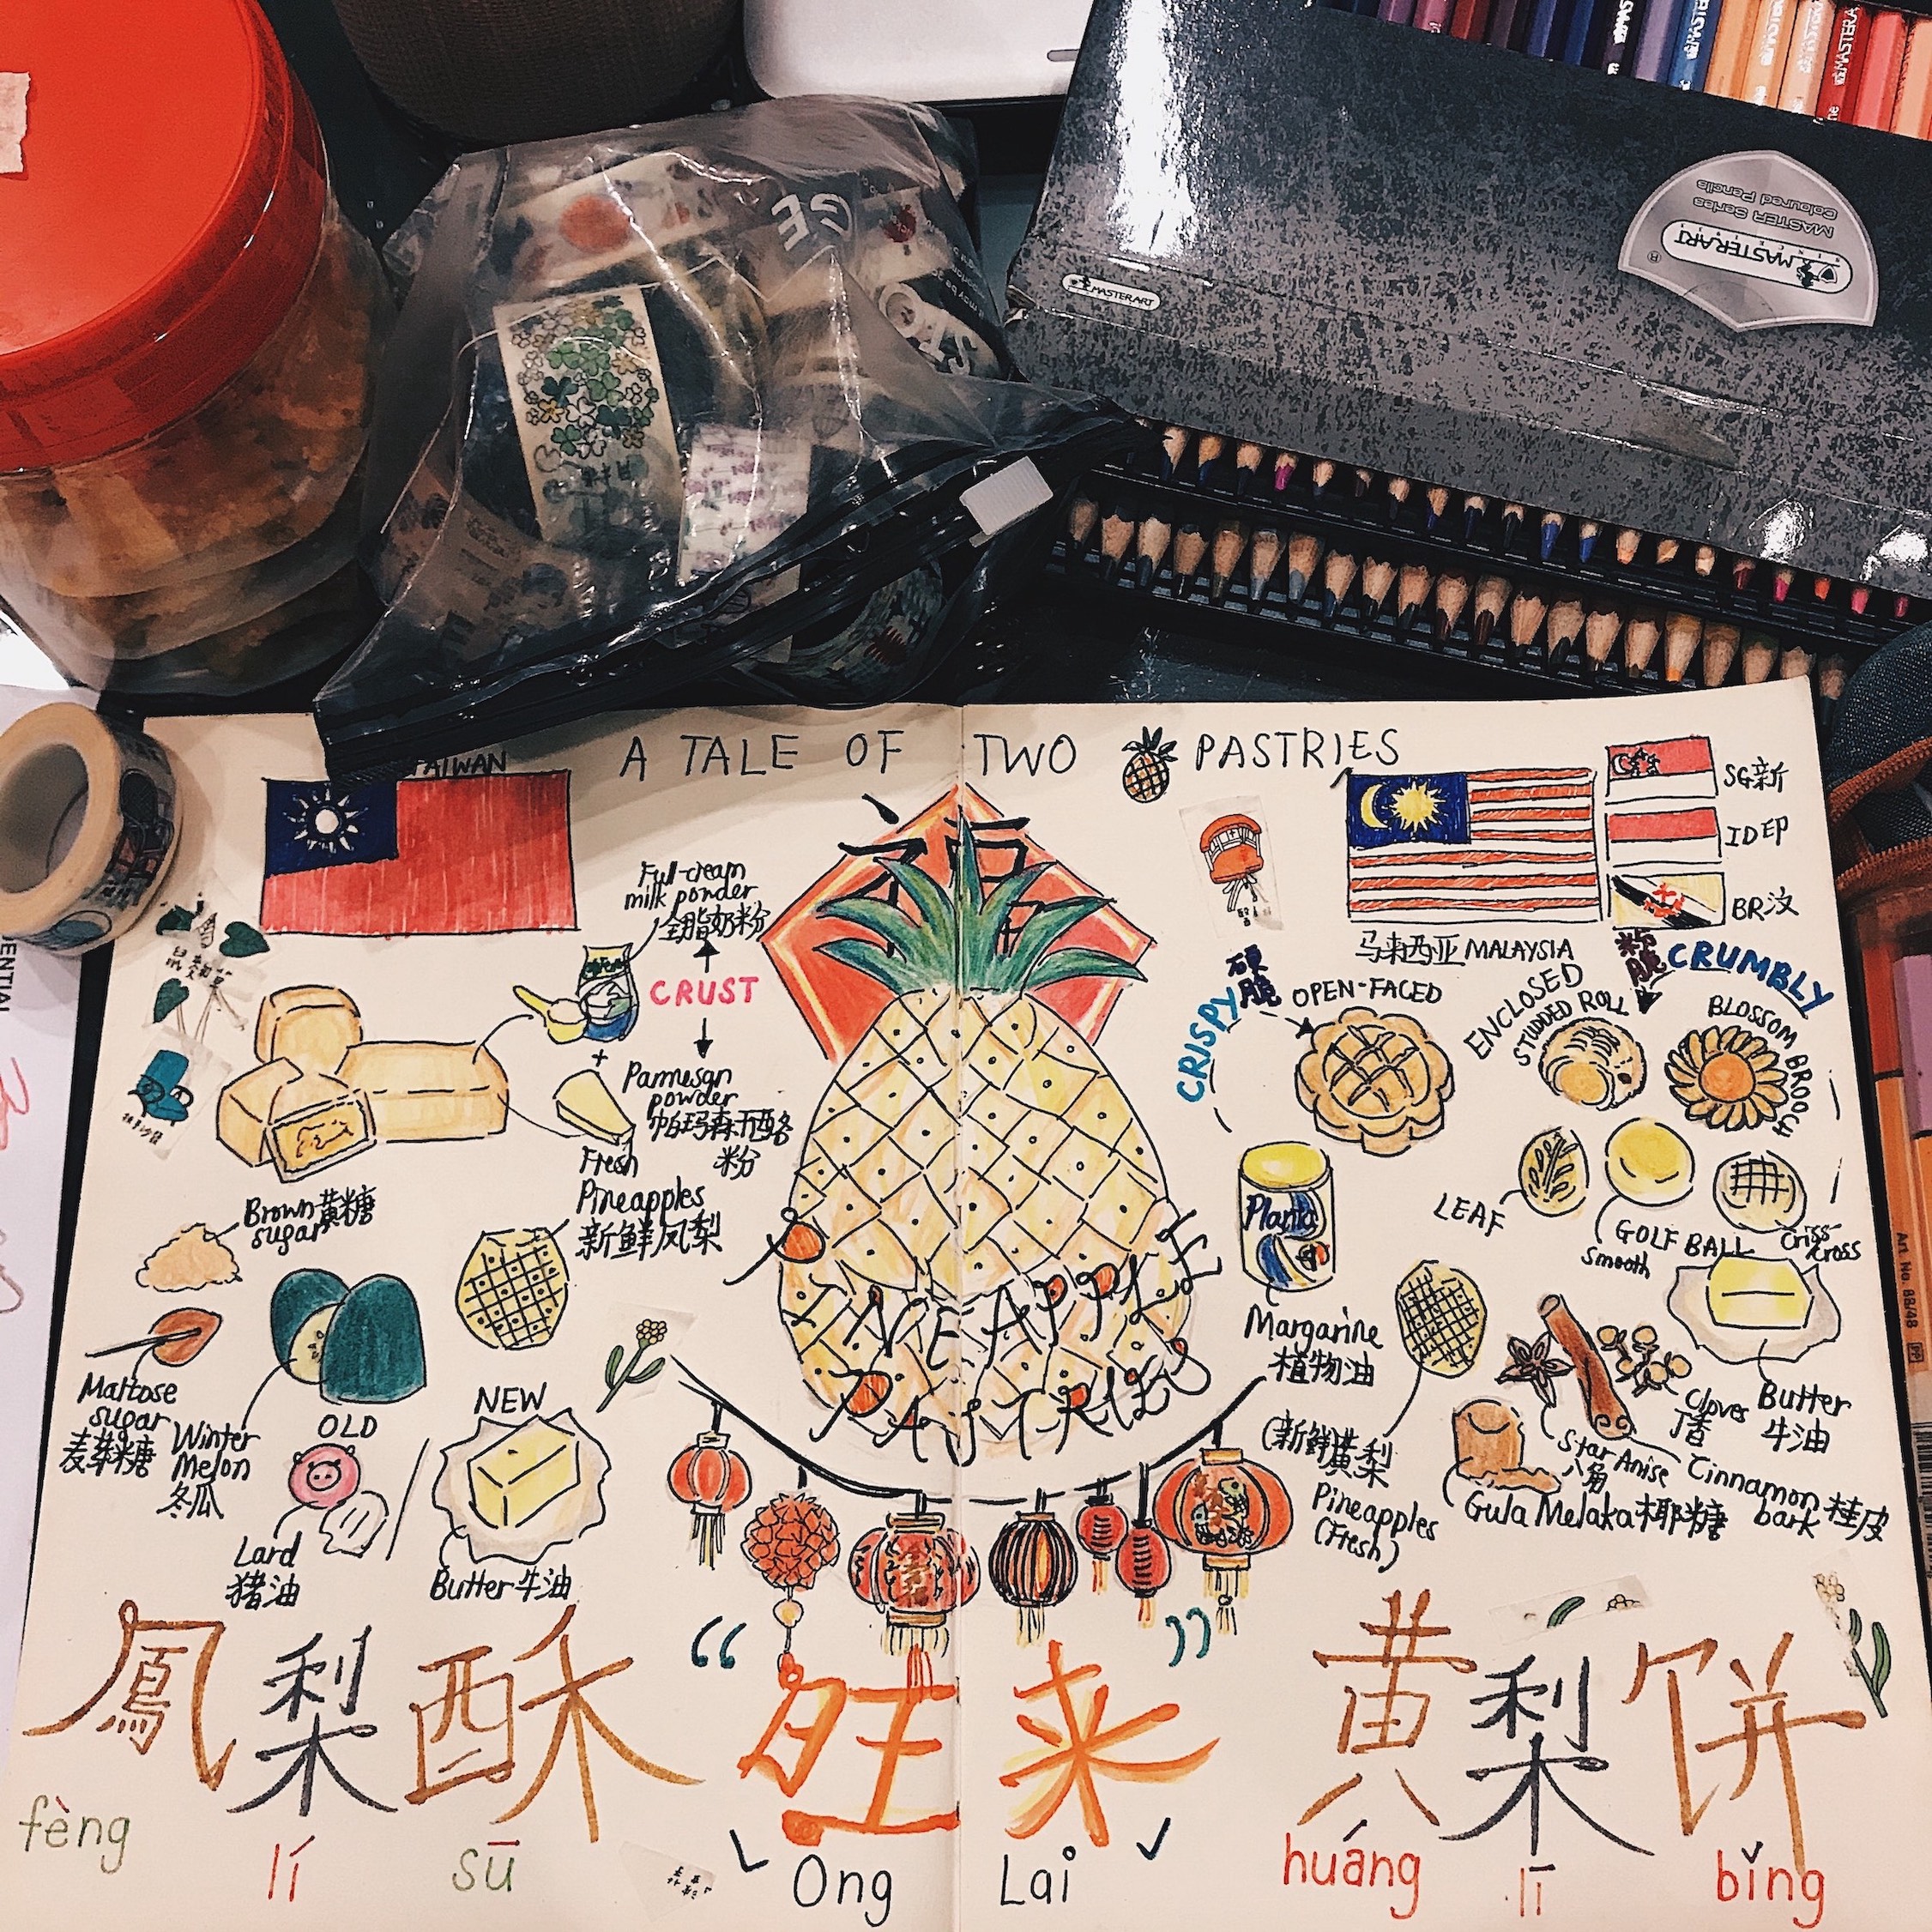 MASTERART
MASTER Series
Coloured Pencils
MASTERART
A TALE OF TWO PASTRIES
TAIWAN
福
Full-cream
milk powder
全脂奶粉
CRUST
+
Parmesan
powder
帕玛森干酪
粉
Fresh
Pineapples
新鲜凤梨
Brown黄糖
sugar
Maltose
sugar
麦芽糖
Winter
Melon
冬瓜
OLD
Lard
猪油
NEW
Butter牛油
PINEAPPLE
PASTRIES
SG新
ID印
BR汶
马来西亚 MALAYSIA
CRISPY 硬脆
OPEN-FACED
粉脆 CRUMBLY
ENCLOSED
STUDDED ROLL
BLOSSOM BROOCH
LEAF
GOLF BALL
Smooth
Criss-
cross
Planta
Margarine
植物油
(新鲜黄梨
Pineapples
(Fresh)
Star Anise
八角
Cloves
丁香
Butter
牛油
Cinnamon
bark 桂皮
Gula Melaka椰糖
鳳梨酥
fèng lí sū
“旺来”
Ong Lai
黄梨饼
huáng lī bǐng
Art. No. 88/48